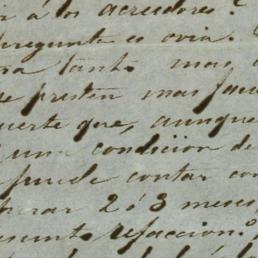 ir á los acreedores?
pregunta es ovia.
tanto mas
se presten mas
uerte que, aunque
una condicion de
puede contar con
2 ó 3 meses
refaccion.